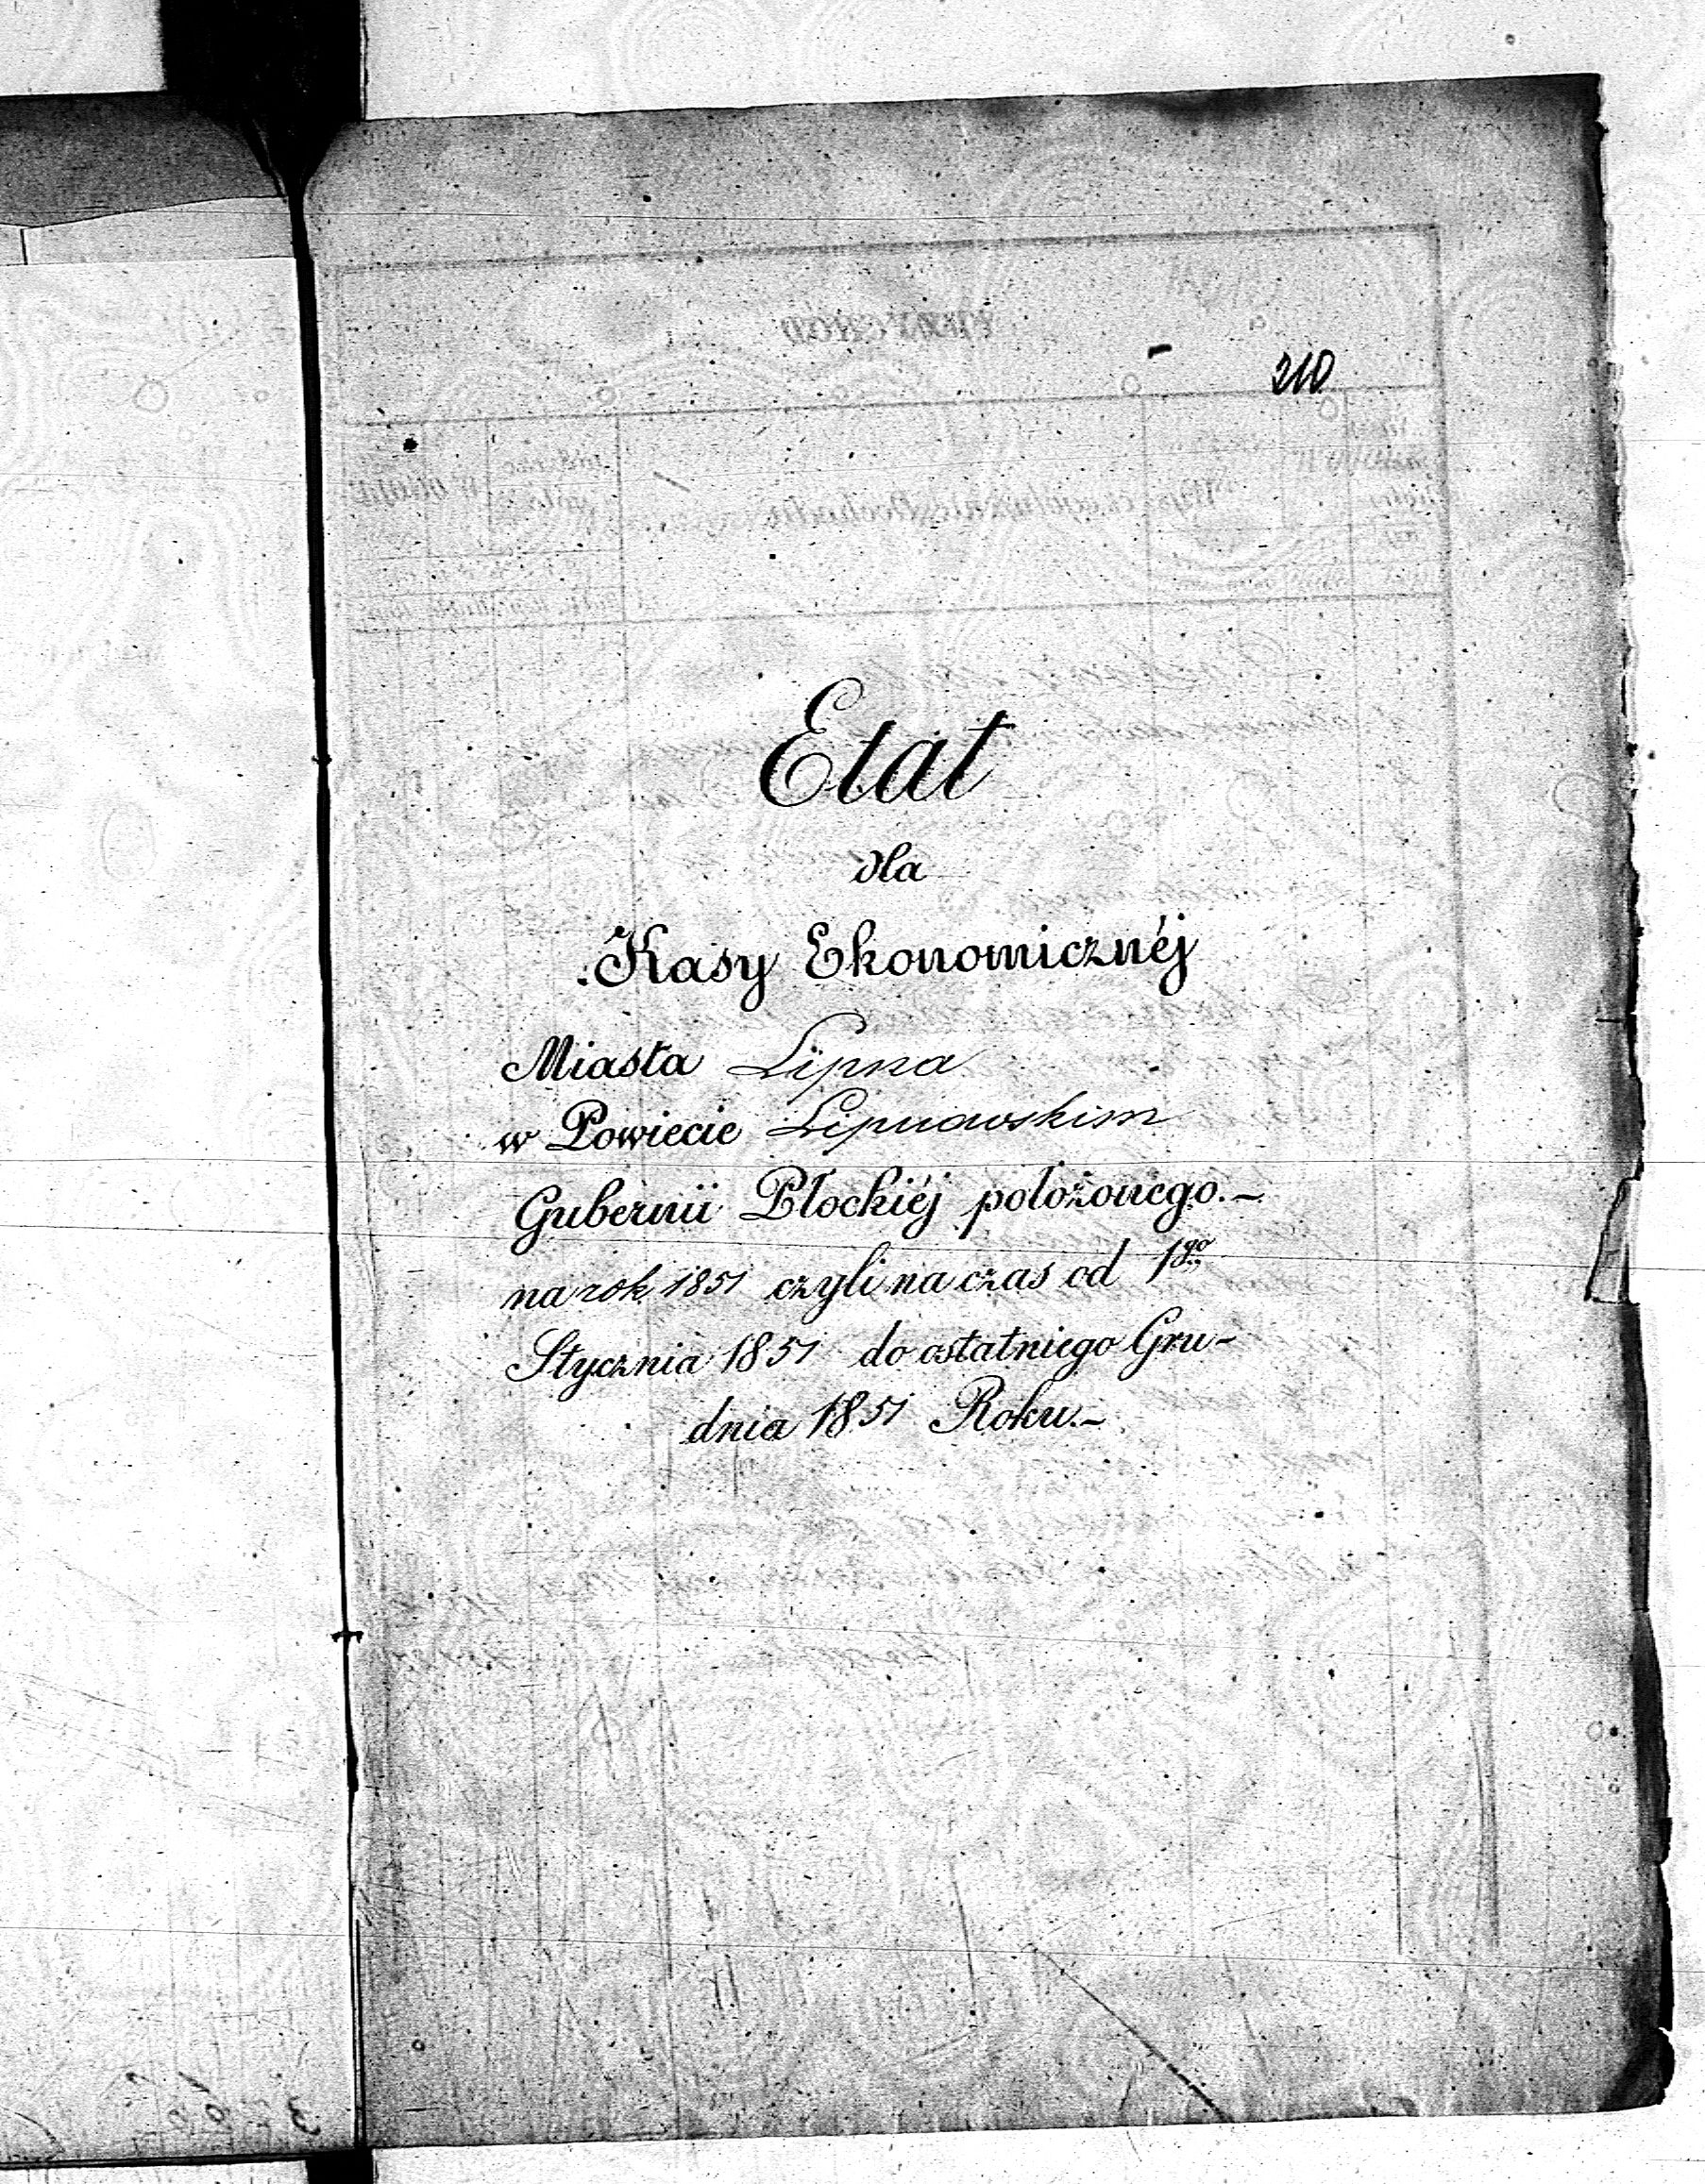 210
Etat
dla
Kasy Ekonomicznéj
Miasta Lipna
w Powiecie Lipnowskim
Gubernii Płockiéj położonego.–
na rok 1851 czyli na czas od 1go
Stycznia 1851 do ostatniego Gru-
dnia 1851 Roku.–